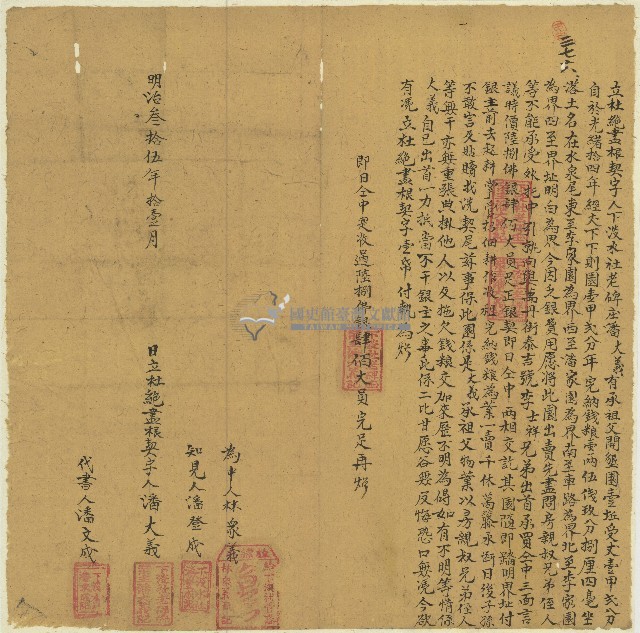 三七六
立杜絕盡根契字人下淡水社老碑庄潘大義有承祖父開墾園壹坵受丈壹甲弍分
自於光緒拾四年經丈下下則園壹甲弍分年完納錢粮壹兩伍伐玖分捌厘四毫坐
落土名在水泉尾東至李家園為界西至潘家園為界南至車路為界北至李家園
為界四至界址明白為界今因乏銀費用愿將此園出賣先盡問房親叔兄弟侄人
等不能承受外托中引就向與萬丹街泰吉號李士祥兄弟出首承買仝中三面言
議時價陸捌佛銀肆佰大員足正銀契即日仝中兩相交訖其園隨即踏明界址付
銀主前去起耕掌管招佃耕作收租完納錢粮為業一賣千休葛藤永断日後子孫
不敢言及貼贖找洗契尾等事保此園係是大義承祖父物業以及房親叔兄弟侄人
等無干亦無重張典掛他人以及拖欠錢粮交加來歷不明為碍如有不明等情係
大義自己出首一力抵當不干銀主之事此係二比甘愿各無反悔恐口無憑今欲
有憑立杜絕盡根契字壹帋付執為炤
即日仝中足收過陸捌佛銀肆佰大員完足再炤
為中人林眾義
知見人潘登成
明治叁拾伍年拾壹月 日立杜絕盡根契字人潘大義
代書人潘文成
國史館臺灣文獻館
TAIWAN HISTORICA